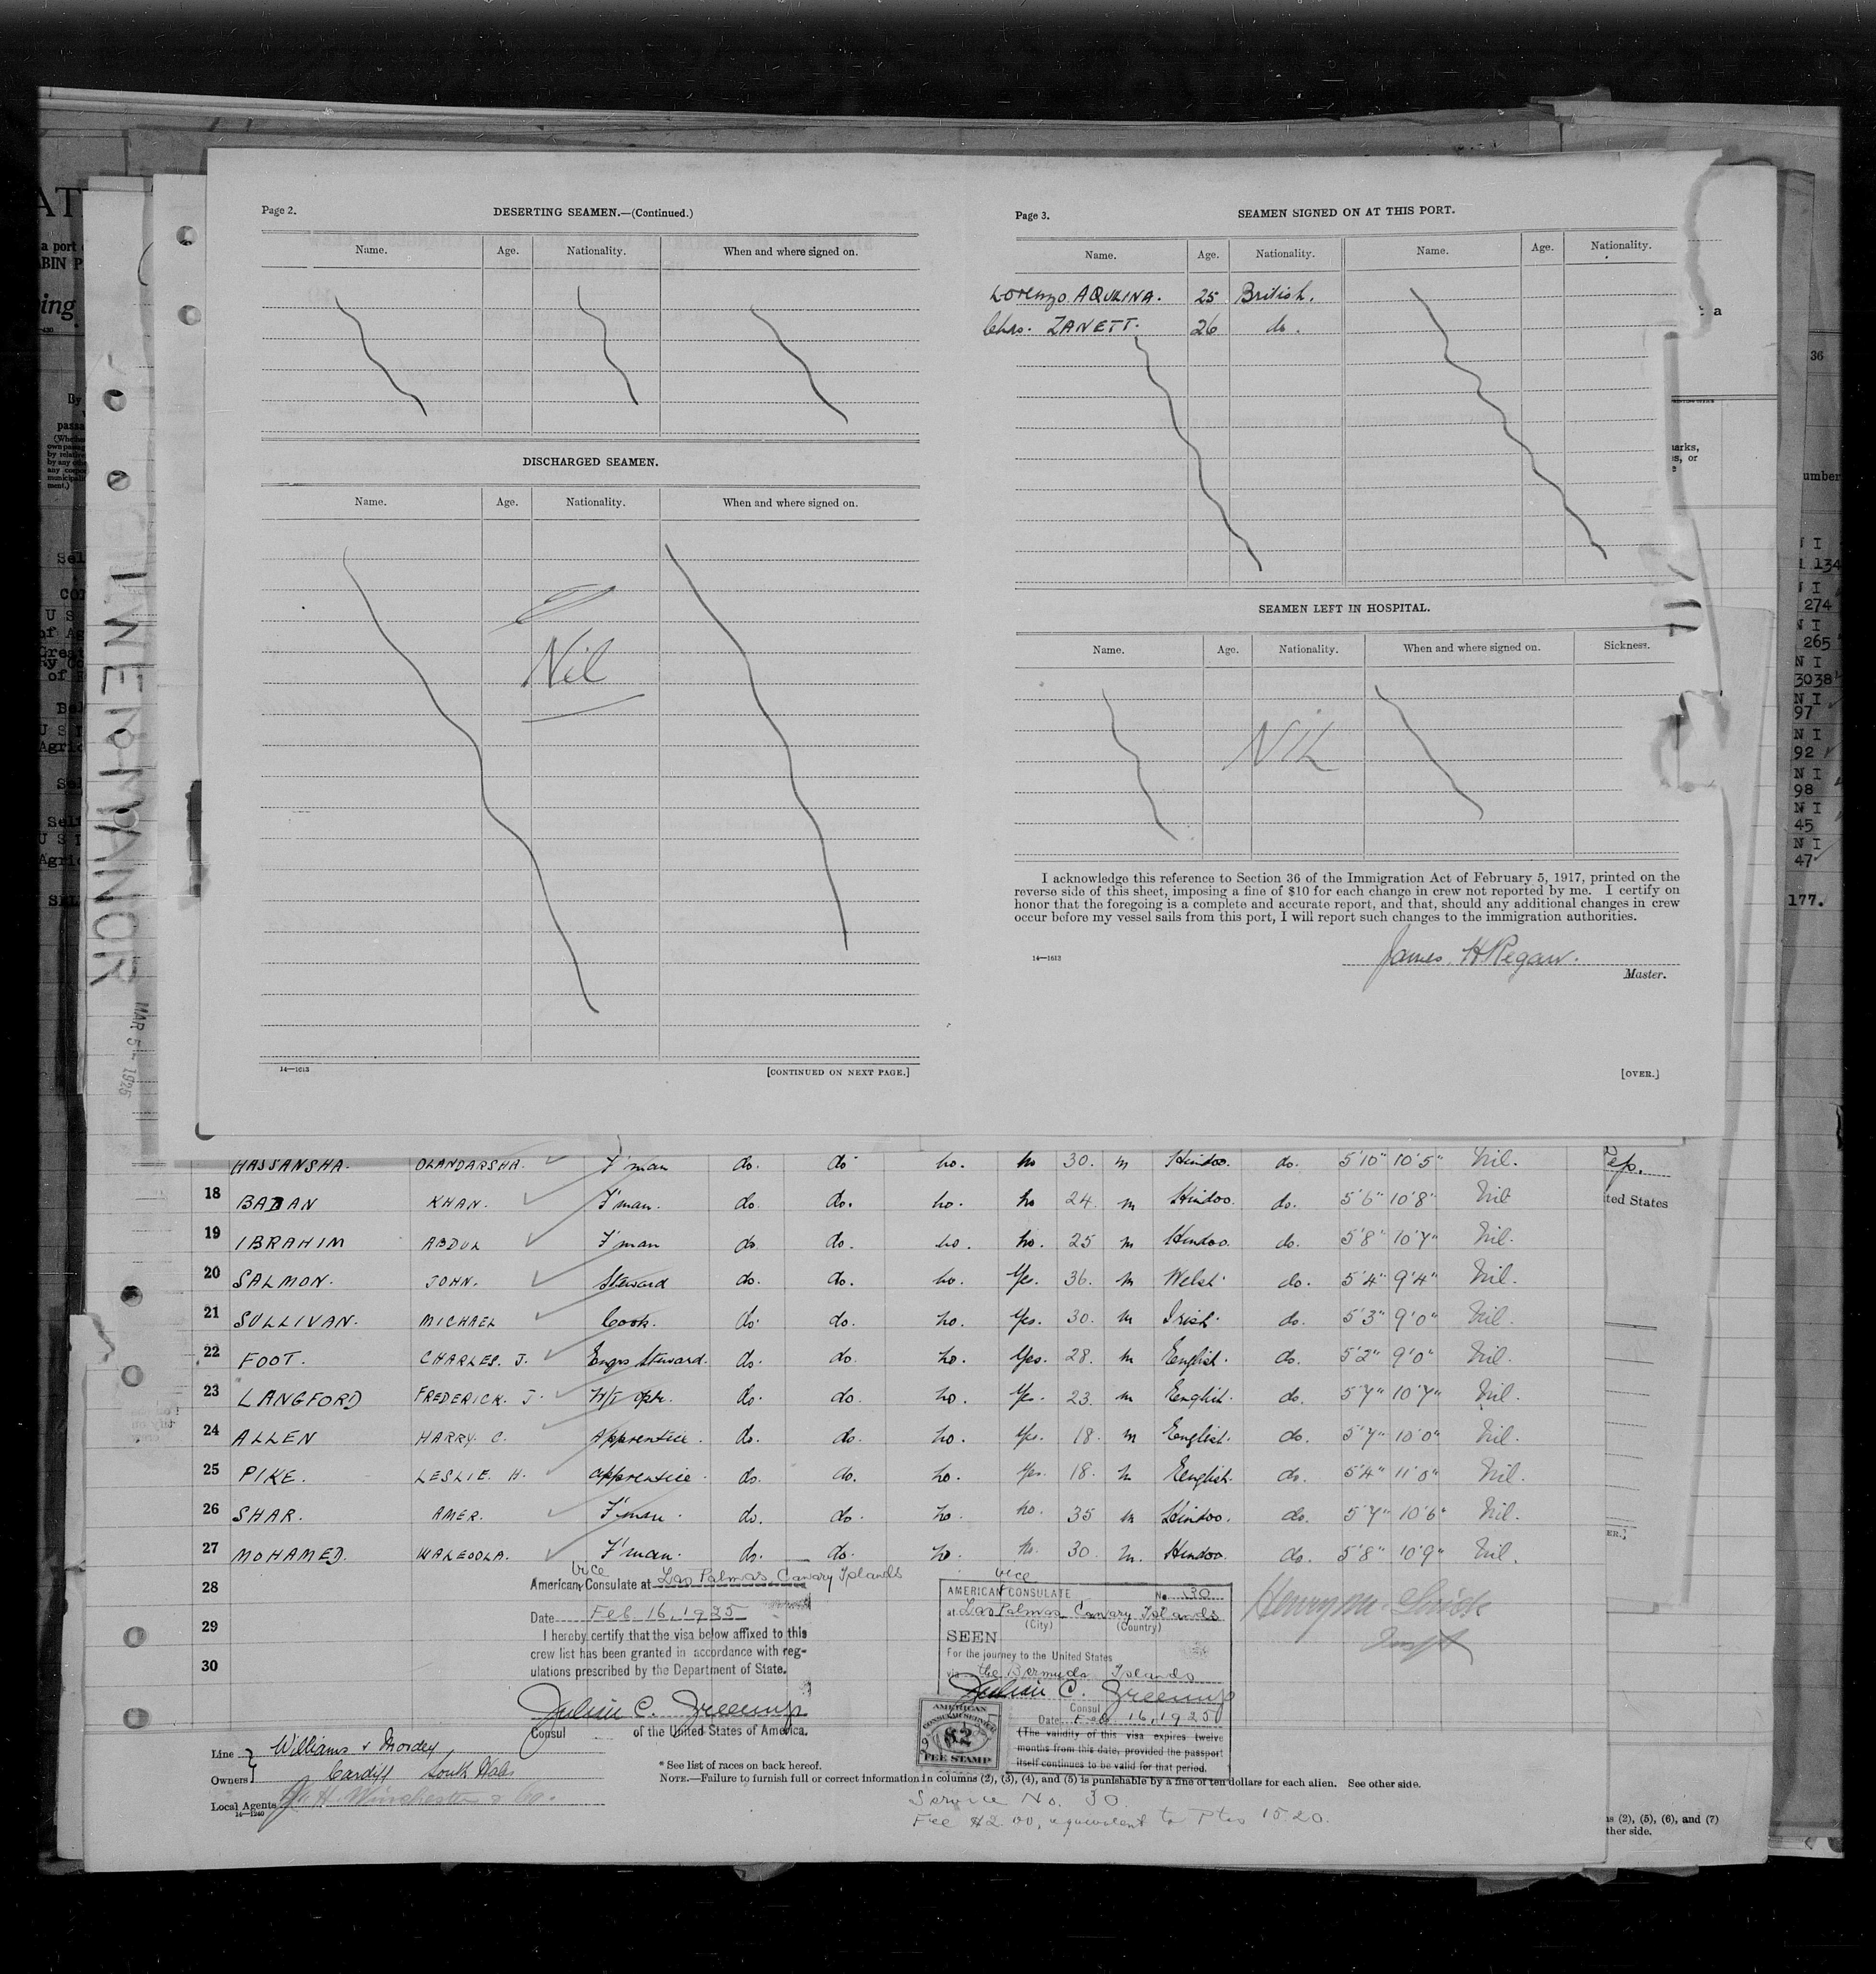 Page 2.
DESERTING SEAMEN.—(Continued.)
Name. Age. Nationality. When and where signed on.
DISCHARGED SEAMEN.
Name. Age. Nationality. When and where signed on.
Nil
14—1613
[CONTINUED ON NEXT PAGE.]
Page 3.
SEAMEN SIGNED ON AT THIS PORT.
Name. Age. Nationality. Name. Age. Nationality.
Lorenzo AQULINA. 25 British.
Chas. ZANETT. 26 do.
SEAMEN LEFT IN HOSPITAL.
Name. Age. Nationality. When and where signed on. Sickness.
NIL
I acknowledge this reference to Section 36 of the Immigration Act of February 5, 1917, printed on the
reverse side of this sheet, imposing a fine of $10 for each change in crew not reported by me. I certify on
honor that the foregoing is a complete and accurate report, and that, should any additional changes in crew
occur before my vessel sails from this port, I will report such changes to the immigration authorities.
14—1613
James H Regan.
Master.
[OVER.]
MANOR
MAR 5 1925
HASSANSHA. OLANDARSHA. F'man do. do no. no 30. m Hindoo. do. 5'10" 10'5" Nil.
18 BADAN KHAN. F'man. do. do. no. no 24. m Hindoo. do. 5'6" 10'8" Nil
19 IBRAHIM ABDUL F'man do do. no. no. 25 m Hindoo. do. 5'8" 10'7" Nil.
20 SALMON. JOHN. Steward do. do. no. Yes. 36. m Welsh. do. 5'4" 9'4" Nil.
21 SULLIVAN. MICHAEL Cook. do. do. no. Yes. 30. m Irish. do. 5'3" 9'0" Nil.
22 FOOT. CHARLES. J. Engrs Steward. do. do. no. Yes. 28. m English. do. 5'2" 9'0" Nil.
23 LANGFORD FREDERICK. J. W/T Optr. do. do. no. Yes. 23. m English. do. 5'7" 10'7" Nil.
24 ALLEN HARRY C. Apprentice. do. do. no. Yes. 18. m English. do. 5'7" 10'0" Nil.
25 PIKE. LESLIE. H. apprentice. do. do. no. Yes. 18. m English. do. 5'4" 11'0" Nil.
26 SHAR. AMER. F'man. do. do. no. no. 35 m Hindoo. do. 5'7" 10'6" Nil.
27 MOHAMED. WALEOOLA. F'man. do. do. no. no. 30. m. Hindoo. do. 5'8" 10'9" Nil.
28
29
30
vice
American Consulate at Las Palmas, Canary Islands
Date Feb 16, 1925
I hereby certify that the visa below affixed to this
crew list has been granted in accordance with reg-
ulations prescribed by the Department of State.
Julian C. Greenup
Consul of the United States of America.
vice
AMERICAN CONSULATE No. 30
at Las Palmas Canary Islands
(City) (Country)
SEEN
For the journey to the United States
via the Bermuda Islands
Julian C. Greenup
Consul
Date Feb 16, 1925
(The validity of this visa expires twelve
months from this date, provided the passport
itself continues to be valid for that period.
AMERICAN
CONSULAR SERVICE
$2
FEE STAMP
Line Williams & Mordey
Owners Cardiff South Wales
Local Agents Winchester & Co.
14—1240
* See list of races on back hereof.
NOTE.—Failure to furnish full or correct information in columns (2), (3), (4), and (5) is punishable by a fine of ten dollars for each alien. See other side.
Service No. 30
Fee $2.00, equivalent to Ptas 15 20.
ited States
s (2), (5), (6), and (7)
ther side.
36
umber
N I
134
N I
274
N I
265
N I
3038
N I
97
N I
92
N I
98
N I
45
N I
47
177.